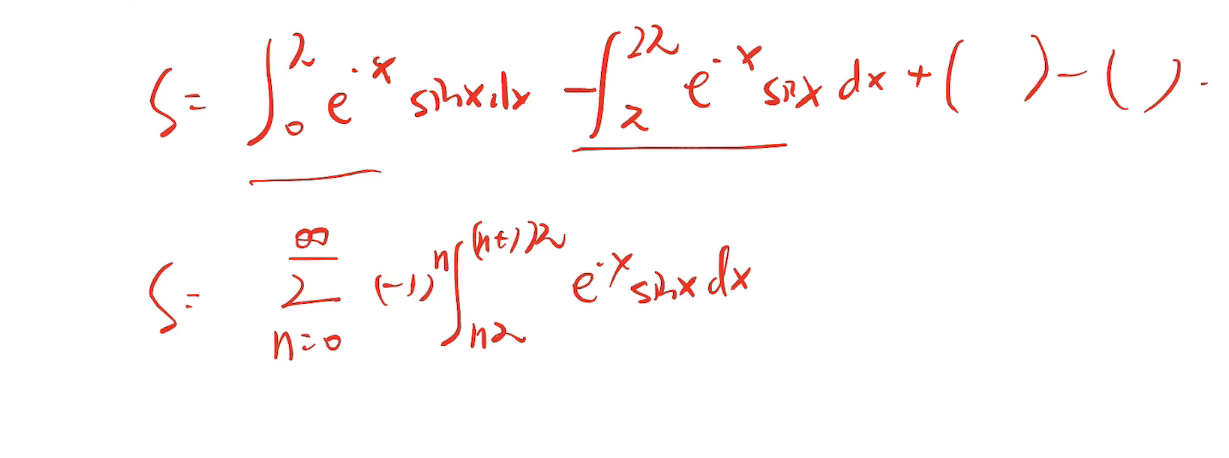 S = ∫₀^π e^{-x} sinx dx - ∫_π^{2π} e^{-x} sinx dx + ( ) - ( ).
S = ∑_{n=0}^∞ (-1)^n ∫_{nπ}^{(n+1)π} e^{-x} sinx dx